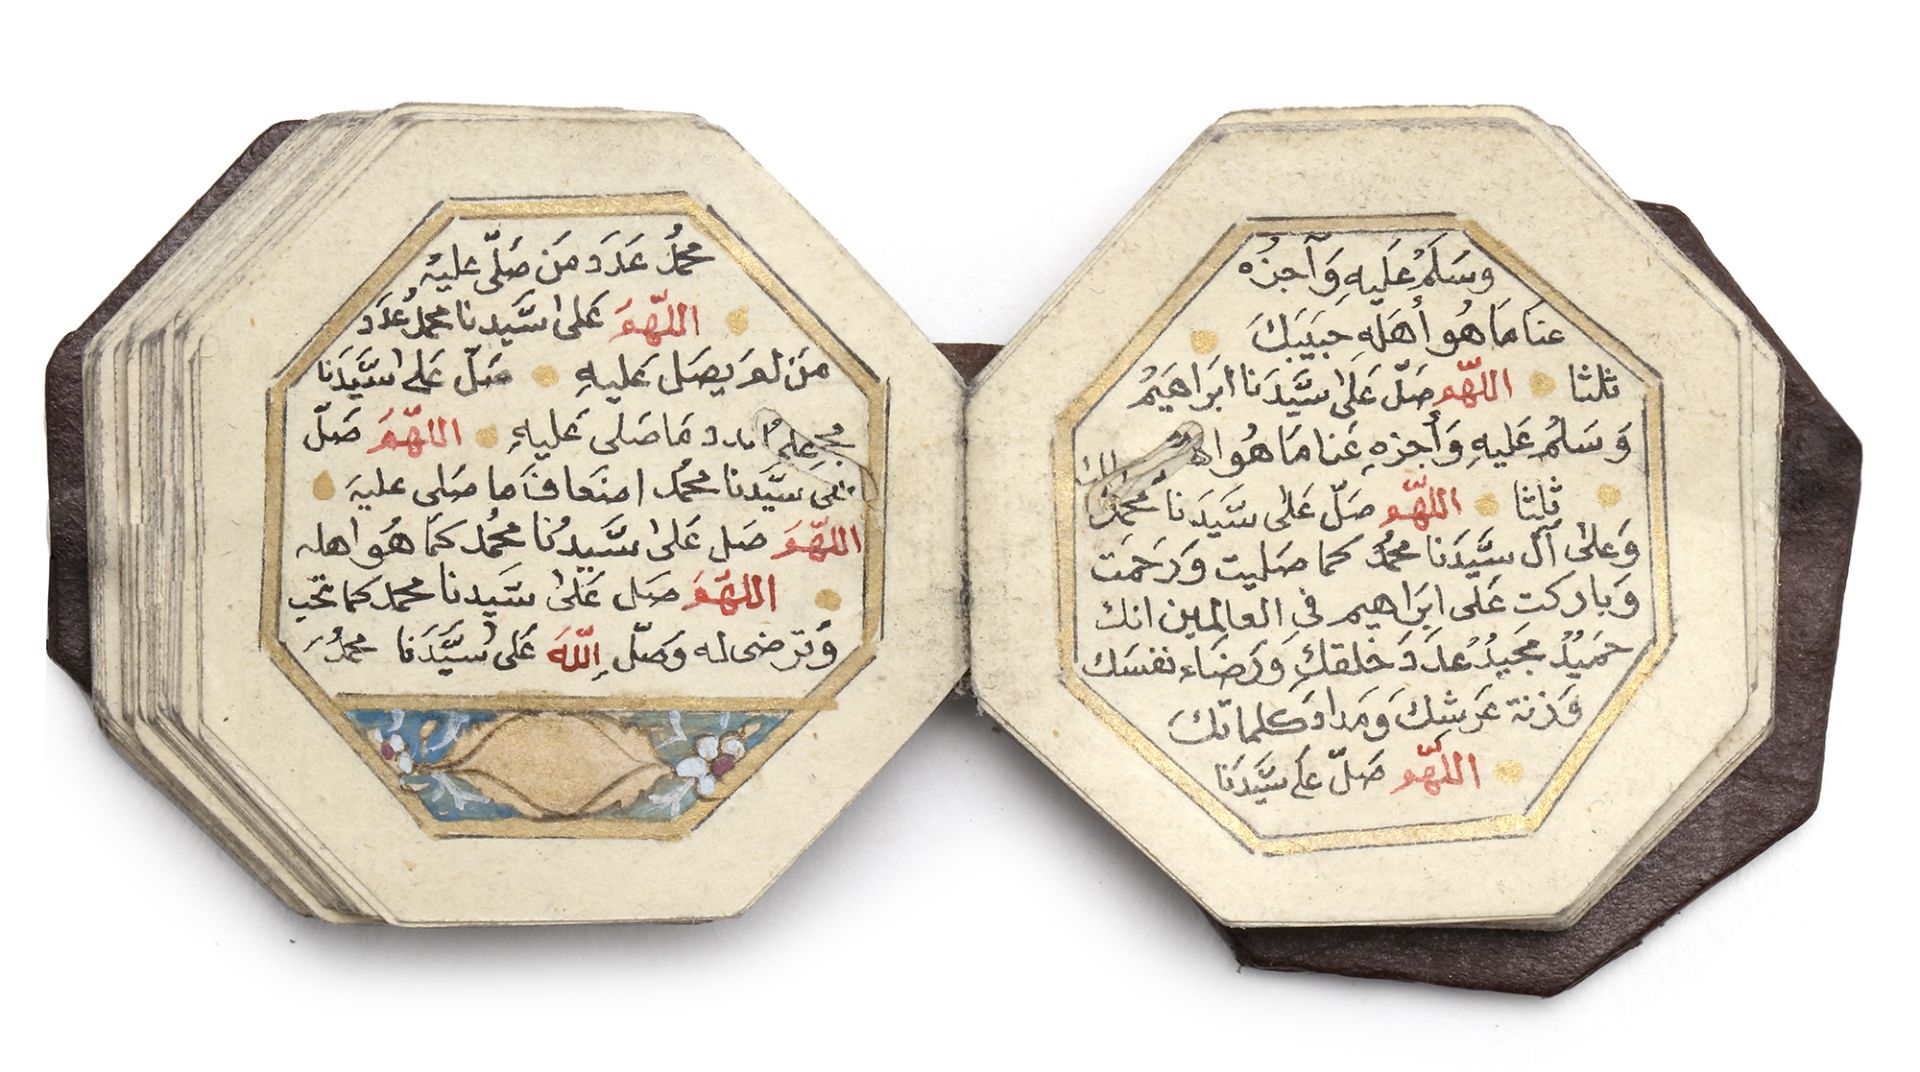 وَسَلِّمُ عَلَيهِ وَآجزُه
عنا مَا هُو أهَلَهِ حبَيَبَكَ
ثلثا اللهّم صَلّ عَلىٰ سَيَّدَنا ابَراهَيمُ
وَسَلمُ عَليهِ وَأجزهِ عَنا مَا هُو
ثلثا اللهّم صَلّ عَلىٰ سَيَّدَنا محمدُ
وَعَلىٰ آل سَيَّدَنا محمدُ كما صَليت وَرَحمَت
وَباركت عَلىٰ ابَراهيم في العالمين انك
حميدُ مجَيدُ عَدَدَ خلقكَ وَرَضَاء نفسَك
وَزنة عَرشكَ وَمَدادَ كلماتكَ
اللهّم صَلّ عَلىٰ سَيَّدَنا
محمدُ عَدَدَ مَن صَلّى عليهْ
اللهّمَ عَلىٰ سَيَّدنا محمدُ عَدَد
مَنَ لم يصَلى عَليهِ صَلّ عَلىٰ سَيَّدَنا
مَا صَلى عَليهِ اللهّمَ صَلّ
سَيَّدنا محمدُ اضعَافَ ما صَلى عليهَ
اللهّمَ صَل عَلىٰ سَيَّدنا محمُد كَما هُو اهله
اللهّمَ صَل عَلىٰ سَيَّدنا محمد كما تحَب
وَترَضى له وَصَلّ اِللّهَ عَلىٰ سَيَّدَنا محمدُ